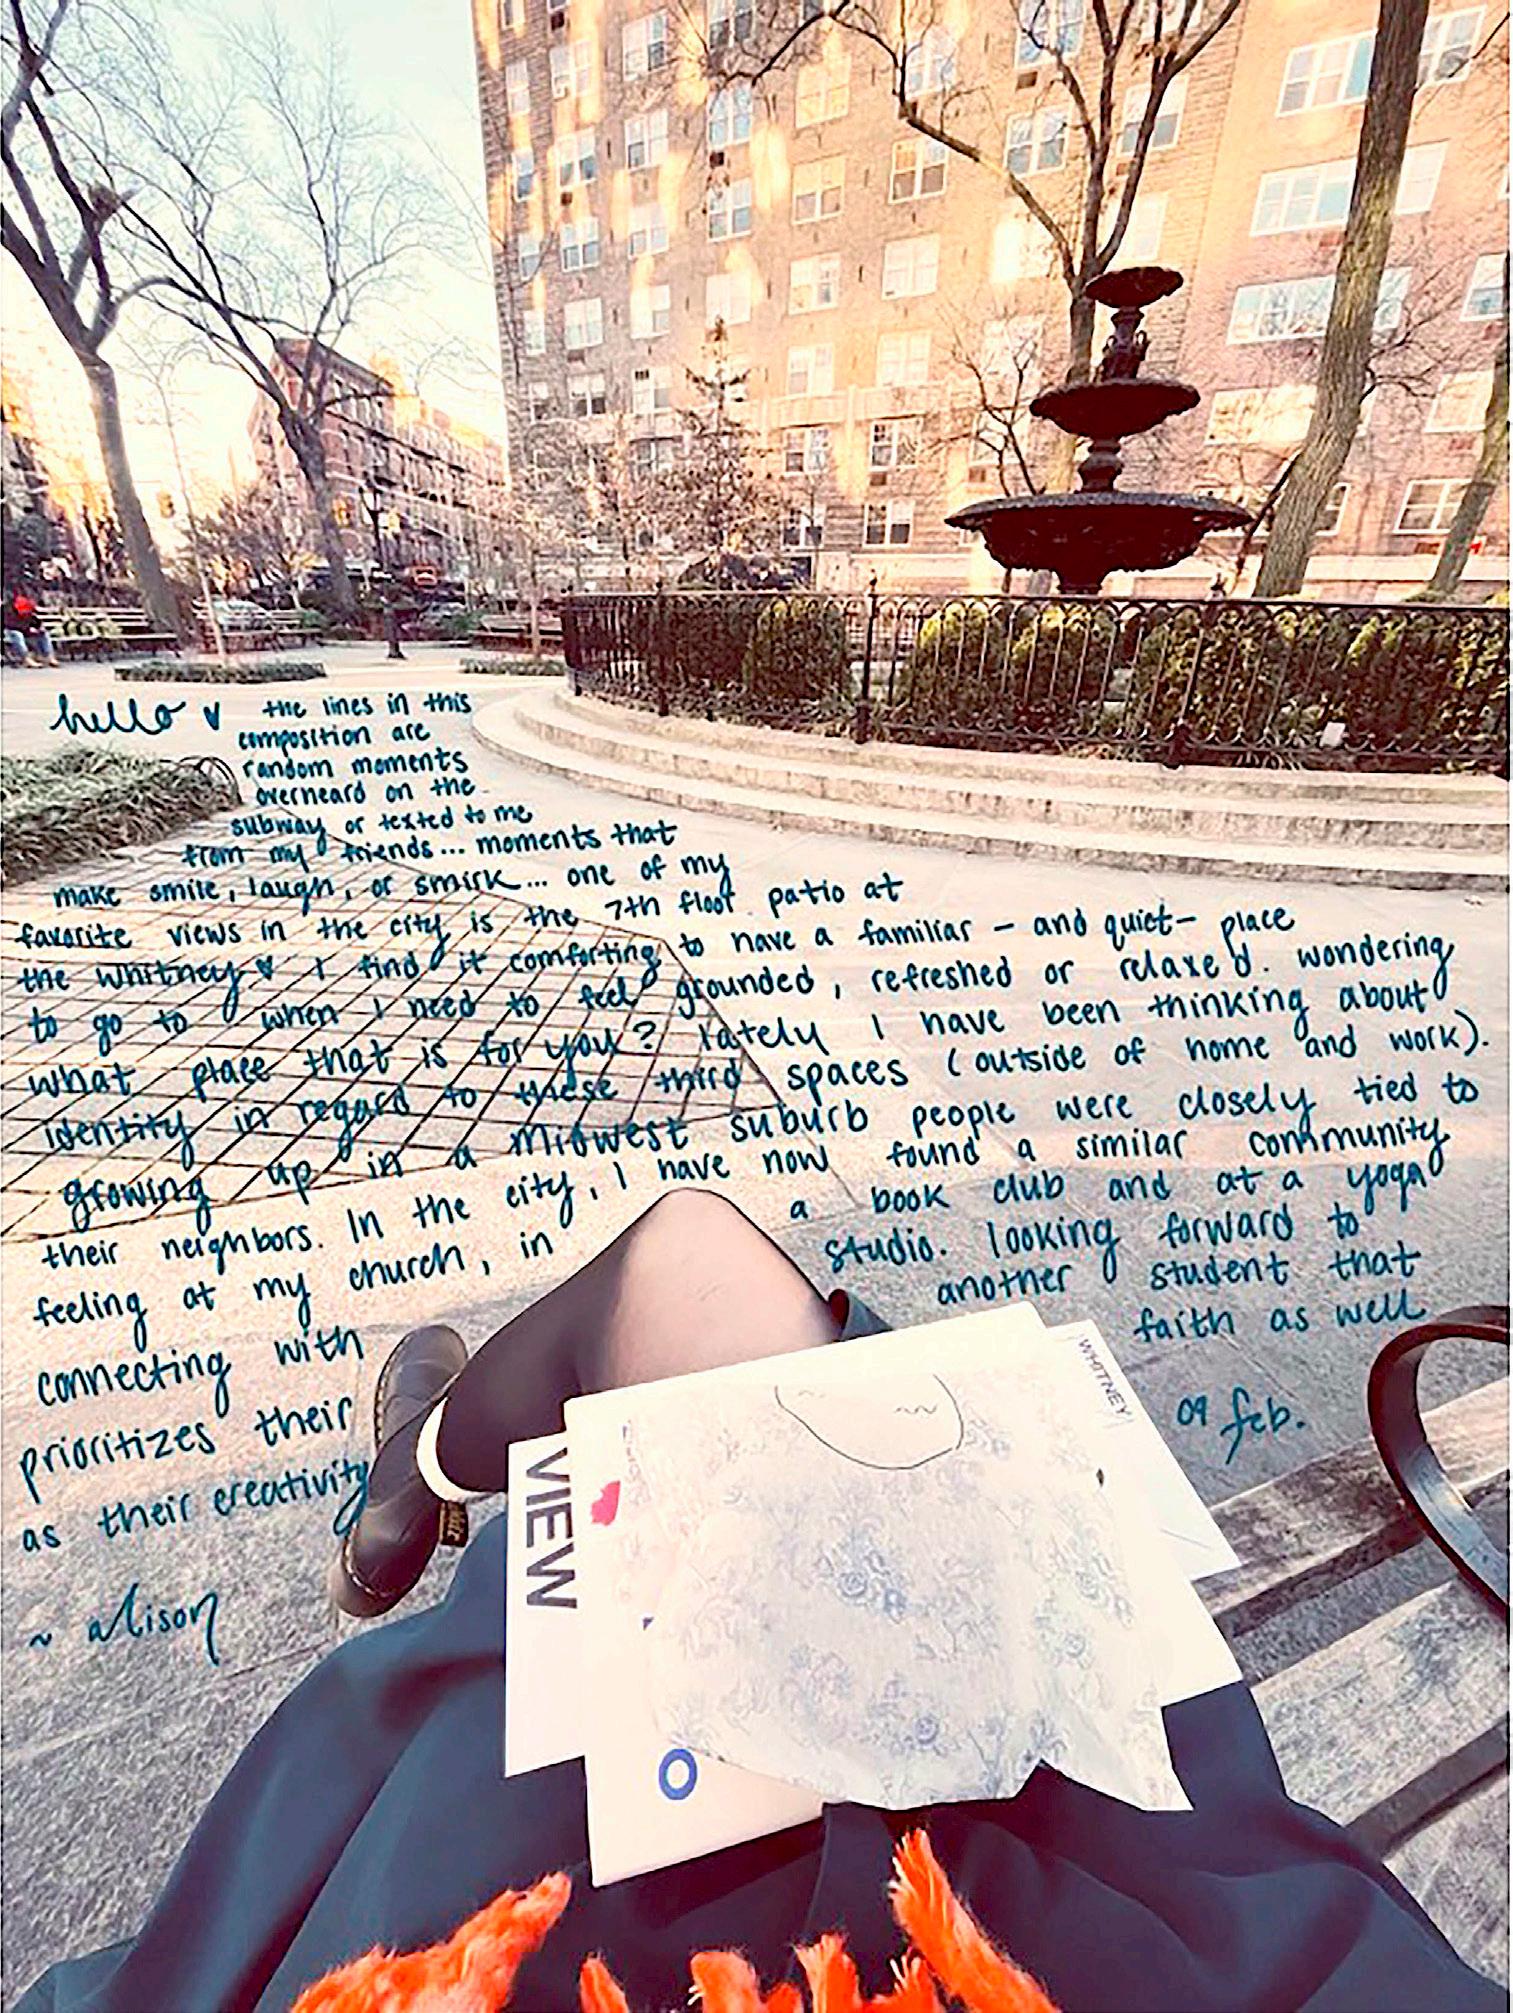 hello ♥ the lines in this
composition are
random moments
overheard on the
subway or texted to me
from my friends... moments that
make smile, laugh, or smirk... one of my
favorite views in the city is the 7th floor patio at
the whitney ♥ I find it comforting to have a familiar - and quiet - place
to go to when I need to feel grounded, refreshed or relaxed. wondering
what place that is for you? lately I have been thinking about
identity in regard to these third spaces (outside of home and work).
growing up in a midwest suburb people were closely tied to
their neighbors. In the city, I have now found a similar community
feeling at my church, in a book club and at a yoga
studio. looking forward to
connecting with another student that
prioritizes their faith as well
as their creativity
09 feb.
~ alison
WHITNEY
VIEW